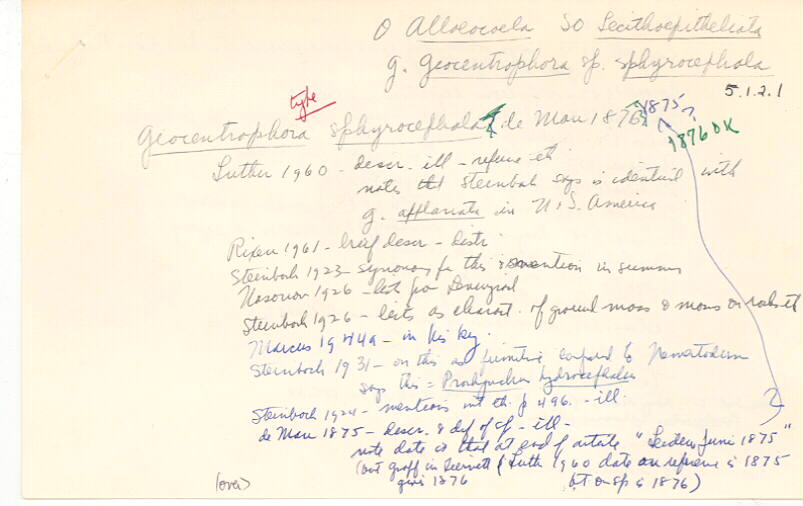 O Alloeocoela SO Lecithoepitheliata
g. Geocentrophora sp. sphyrocephala
5.1.2.1
type
Geocentrophora sphyrocephala de Man 1876 1875?
1876 OK
Luther 1960 - descr. ill - refuse etc
notes that Steinbock says is identical with
g. applanata in U.S. America
Rixen 1961 - brief descr - distr
Steinbock 1923 - synonomy for this & mention in summary
Nasonov 1926 - list from Leningrad
Steinbock 1926 - lists as charact. of ground moss & moss on rocks etc
Marcus 1944a - in his key.
Steinbock 1931 - on this as primitive compared to
says this = Prorhynchus hydrocephalus
Steinbock 1924 - mentions int. eth. p 496. - ill.
de Man 1875 - descr. & def of cf - ill -
note date is that at end of article "Leiden Juni 1875"
(but Graff in Tierreich & Luth 1960 date on refrence is 1875
gives 1876 but on sp is 1876)
(over)
?